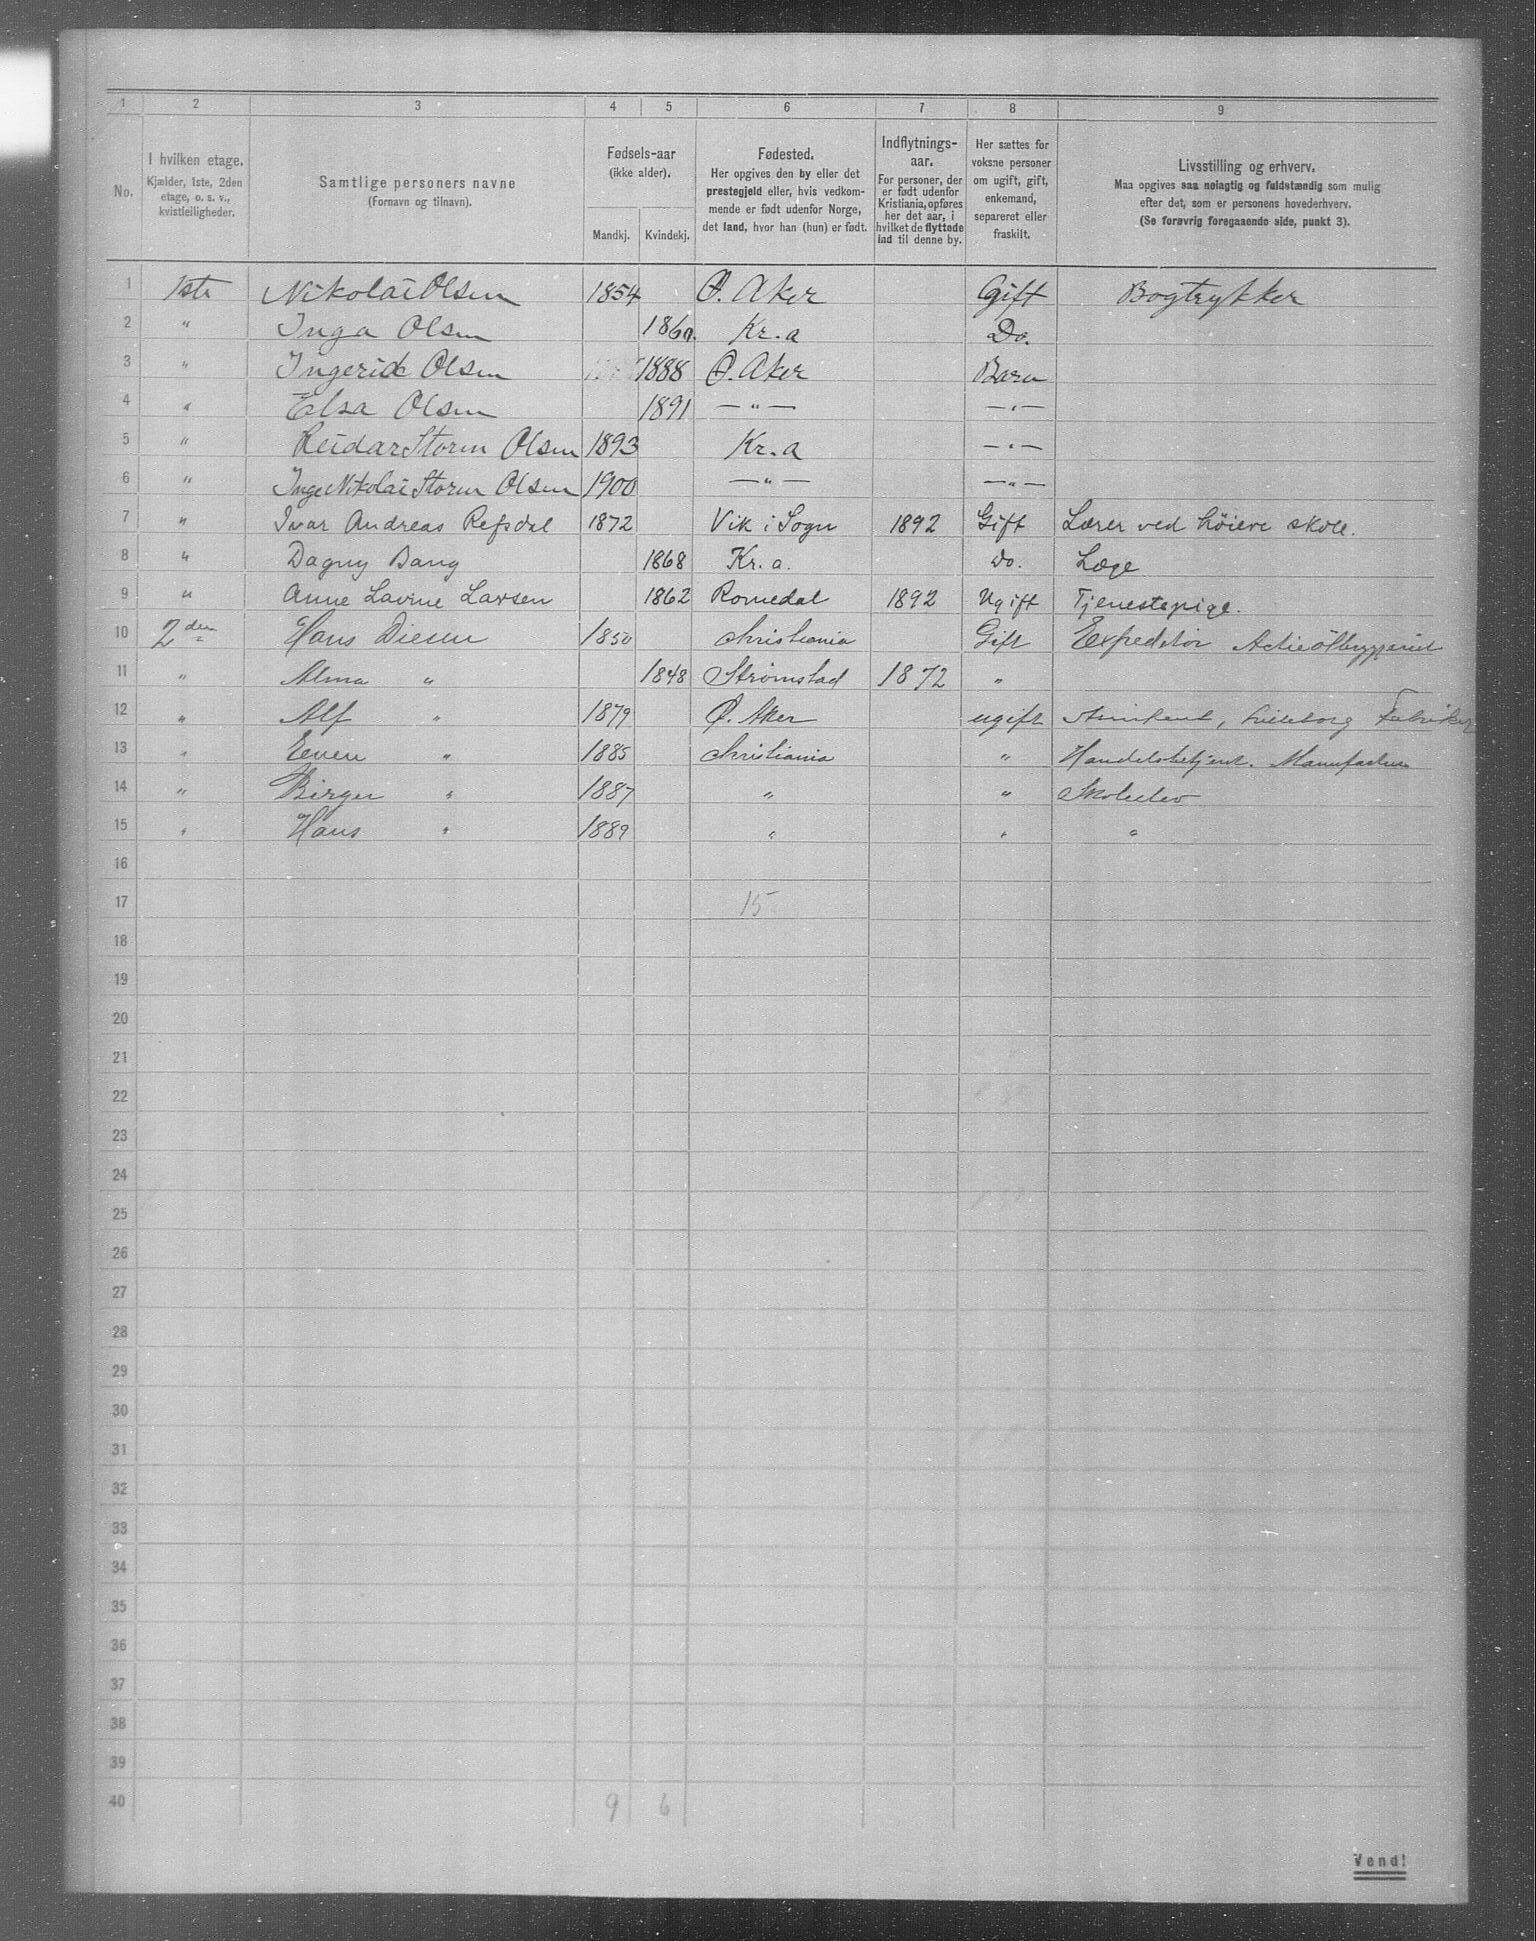 1 2 3 4 5 6 7 8 9
No.
I hvilken etage.
Kjælder, 1ste, 2den
etage, o. s. v.,
kvistleiligheder.
Samtlige personers navne
(Fornavn og tilnavn).
Fødsels-aar
(ikke alder).
Mandkj. Kvindekj.
Fødested.
Her opgives den by eller det
prestegjeld eller, hvis vedkom-
mende er født udenfor Norge,
det land, hvor han (hun) er født.
Indflytnings-
aar.
For personer, der
er født udenfor
Kristiania, opføres
her det aar, i
hvilket de flyttede
ind til denne by.
Her sættes for
voksne personer
om ugift, gift,
enkemand,
separeret eller
fraskilt.
Livsstilling og erhverv.
Maa opgives saa nøiagtig og fuldstændig som mulig
efter det, som er personens hovederhverv.
(Se forøvrig foregaaende side, punkt 3).
1 1ste Nikolai Olsen 1854 Ø. Aker Gift Bogtrykker
2 " Inga Olsen Kr.a Do.
3 " Ingerid Olsen 1888 Ø. Aker Barn
4 " Elsa Olsen 1891 — " — — " —
5 " Reidar Storm Olsen 1893 Kr.a — " —
6 " Inge Nikolai Storm Olsen 1900 — " — — " —
7 " Ivar Andreas Refsdal 1872 Vik i Sogn 1892 Gift Lærer ved høiere skole.
8 " Dagny Bang 1868 Kr.a. do. Læge
9 " Anne Lavine Larsen 1862 Romedal 1892 Ugift Tjenestepige.
10 2den Hans Diesen 1850 Christiania Gift Expeditør Actieølbryggeriet
11 " Alma " 1848 Strømstad 1872 "
12 " Alf " 1879 Ø. Aker ugift Assistent, Lilleborg Fabriker
13 " Even " 1885 Christiania " Handelsbetjent. Manufactur
14 " Birger " 1887 " " Skoleelev
15 " Hans " 1889 " " "
16
17 15
18
19
20
21
22
23
24
25
26
27
28
29
30
31
32
33
34
35
36
37
38
39
40 9 6
Vend!